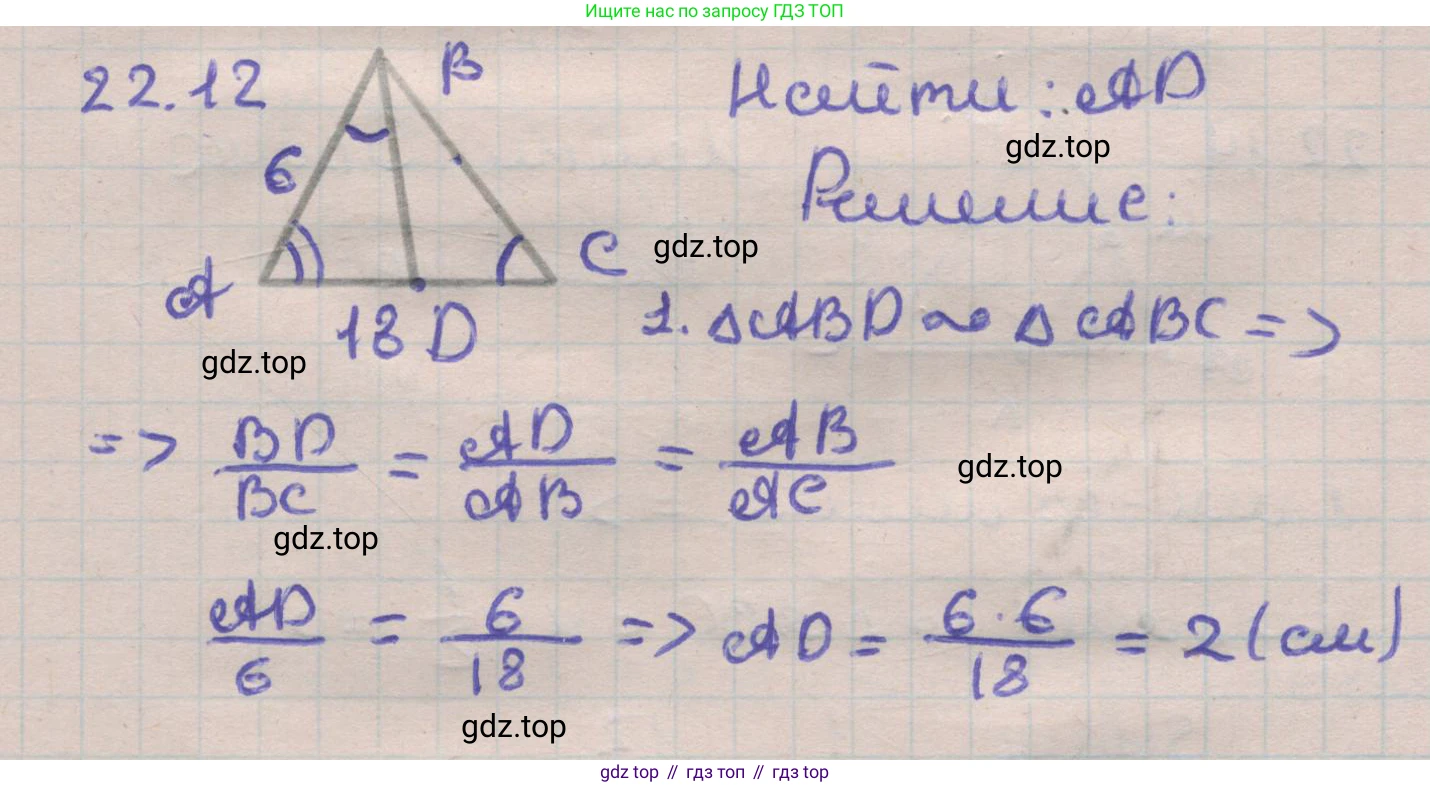 Ищите нас по запросу ГДЗ ТОП
22.12
B
6
A
C
18 D
Найти: AD
gdz.top
Решение:
gdz.top
1. △ABD ∾ △ABC =>
gdz.top
=> BD/BC = AD/AB = AB/AC
gdz.top
gdz.top
AD/6 = 6/18 => AD = 6·6/18 = 2 (см)
gdz.top
gdz top // гдз топ // gdz top